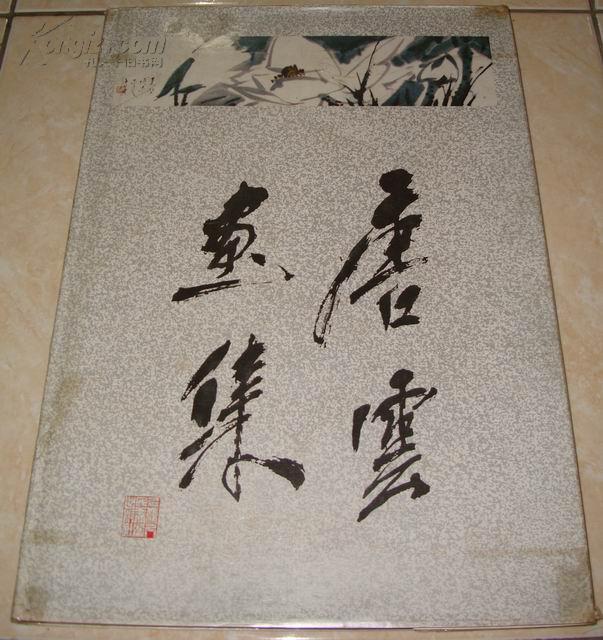 唐雲
画集
Kongfz.com
孔夫子旧书网